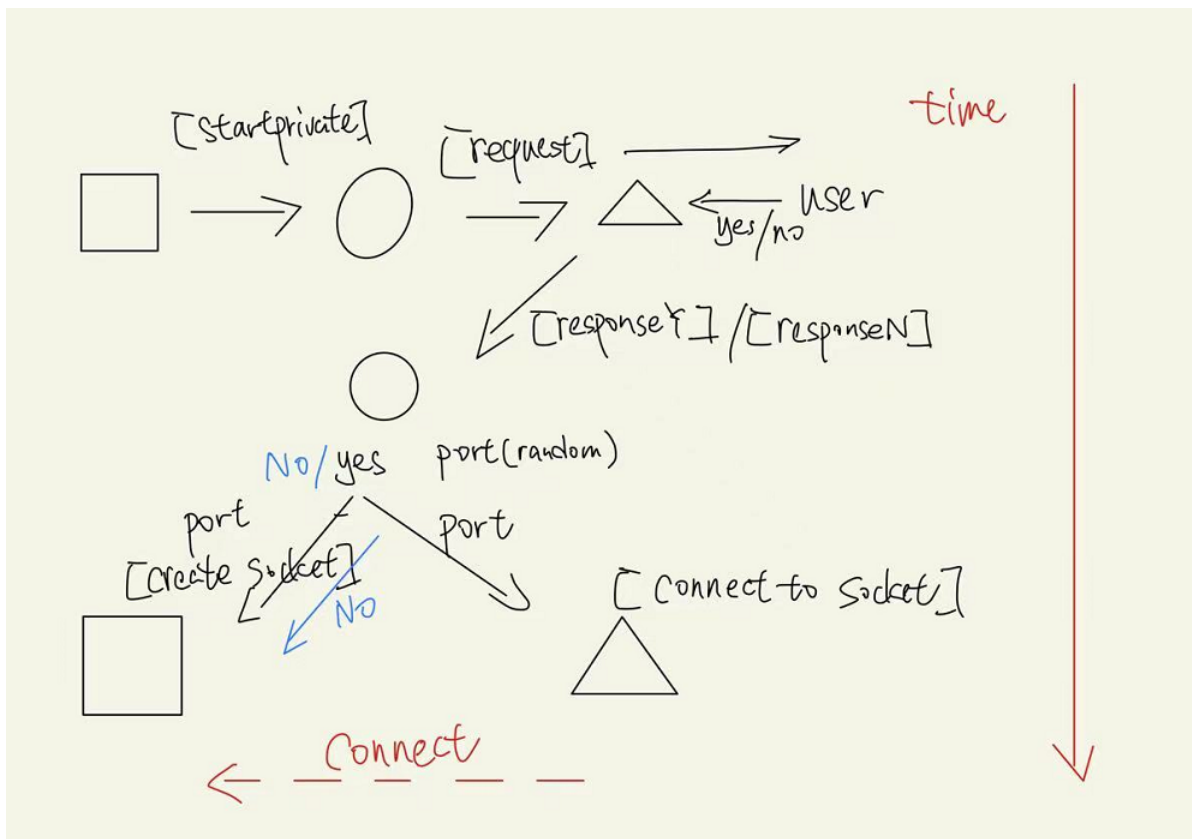 time
[startprivate]
[request]
user
yes/no
[responseY]/[responseN]
No/yes
port(random)
port
port
[create socket]
No
[connect to socket]
Connect